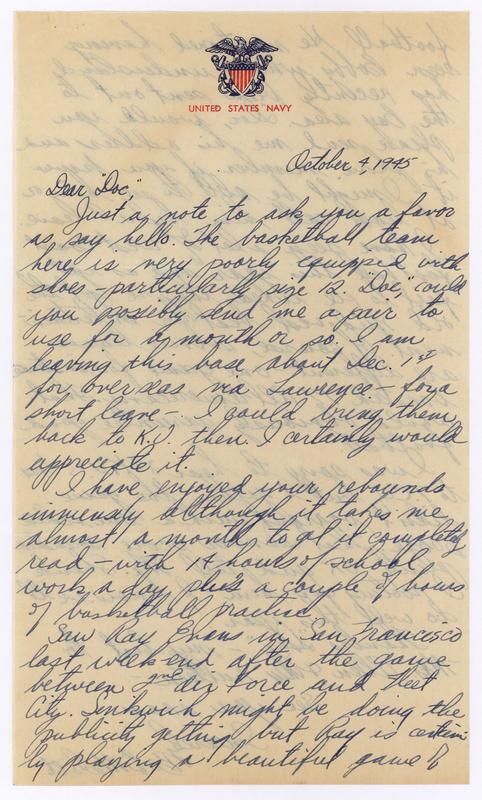 UNITED STATES NAVY
October 4, 1945
Dear "Doc",
Just a note to ask you a favor
as say hello. The basketball team
here is very poorly equipped with
shoes - particularly size 12. "Doc", could
you possibly send me a pair to
use for a month or so. I am
leaving this base about Dec. 1st
for overseas via Lawrence - for a
short leave -. I could bring them
back to K.U. then. I certainly would
appreciate it.
I have enjoyed your rebounds
immensely although it takes me
almost a month to get it completely
read - with 14 hours of school
work a day plus a couple of hours
of basketball practice.
Saw Ray Evans in San Francisco
last week-end after the game
between 2nd Air Force and Fleet
City. Sinkwich might be doing the
publicity getting but Ray is certain-
ly playing a beautiful game of